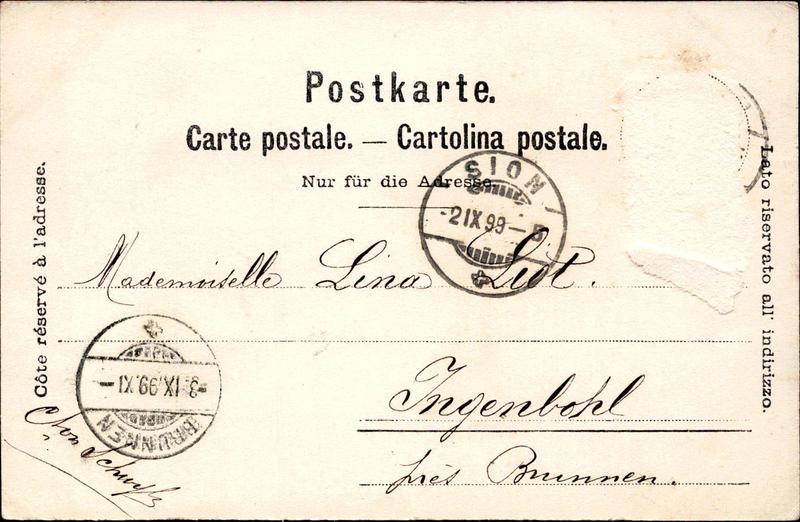 Postkarte.
Carte postale. — Cartolina postale.
Nur für die Adresse.
SION
-2 IX 99-5
Côte réservé à l'adresse.
Lato riservato all' indirizzo.
Mademoiselle Lina
Ingenbohl
près Brunnen.
-3.IX.99.XI-
BRUNNEN